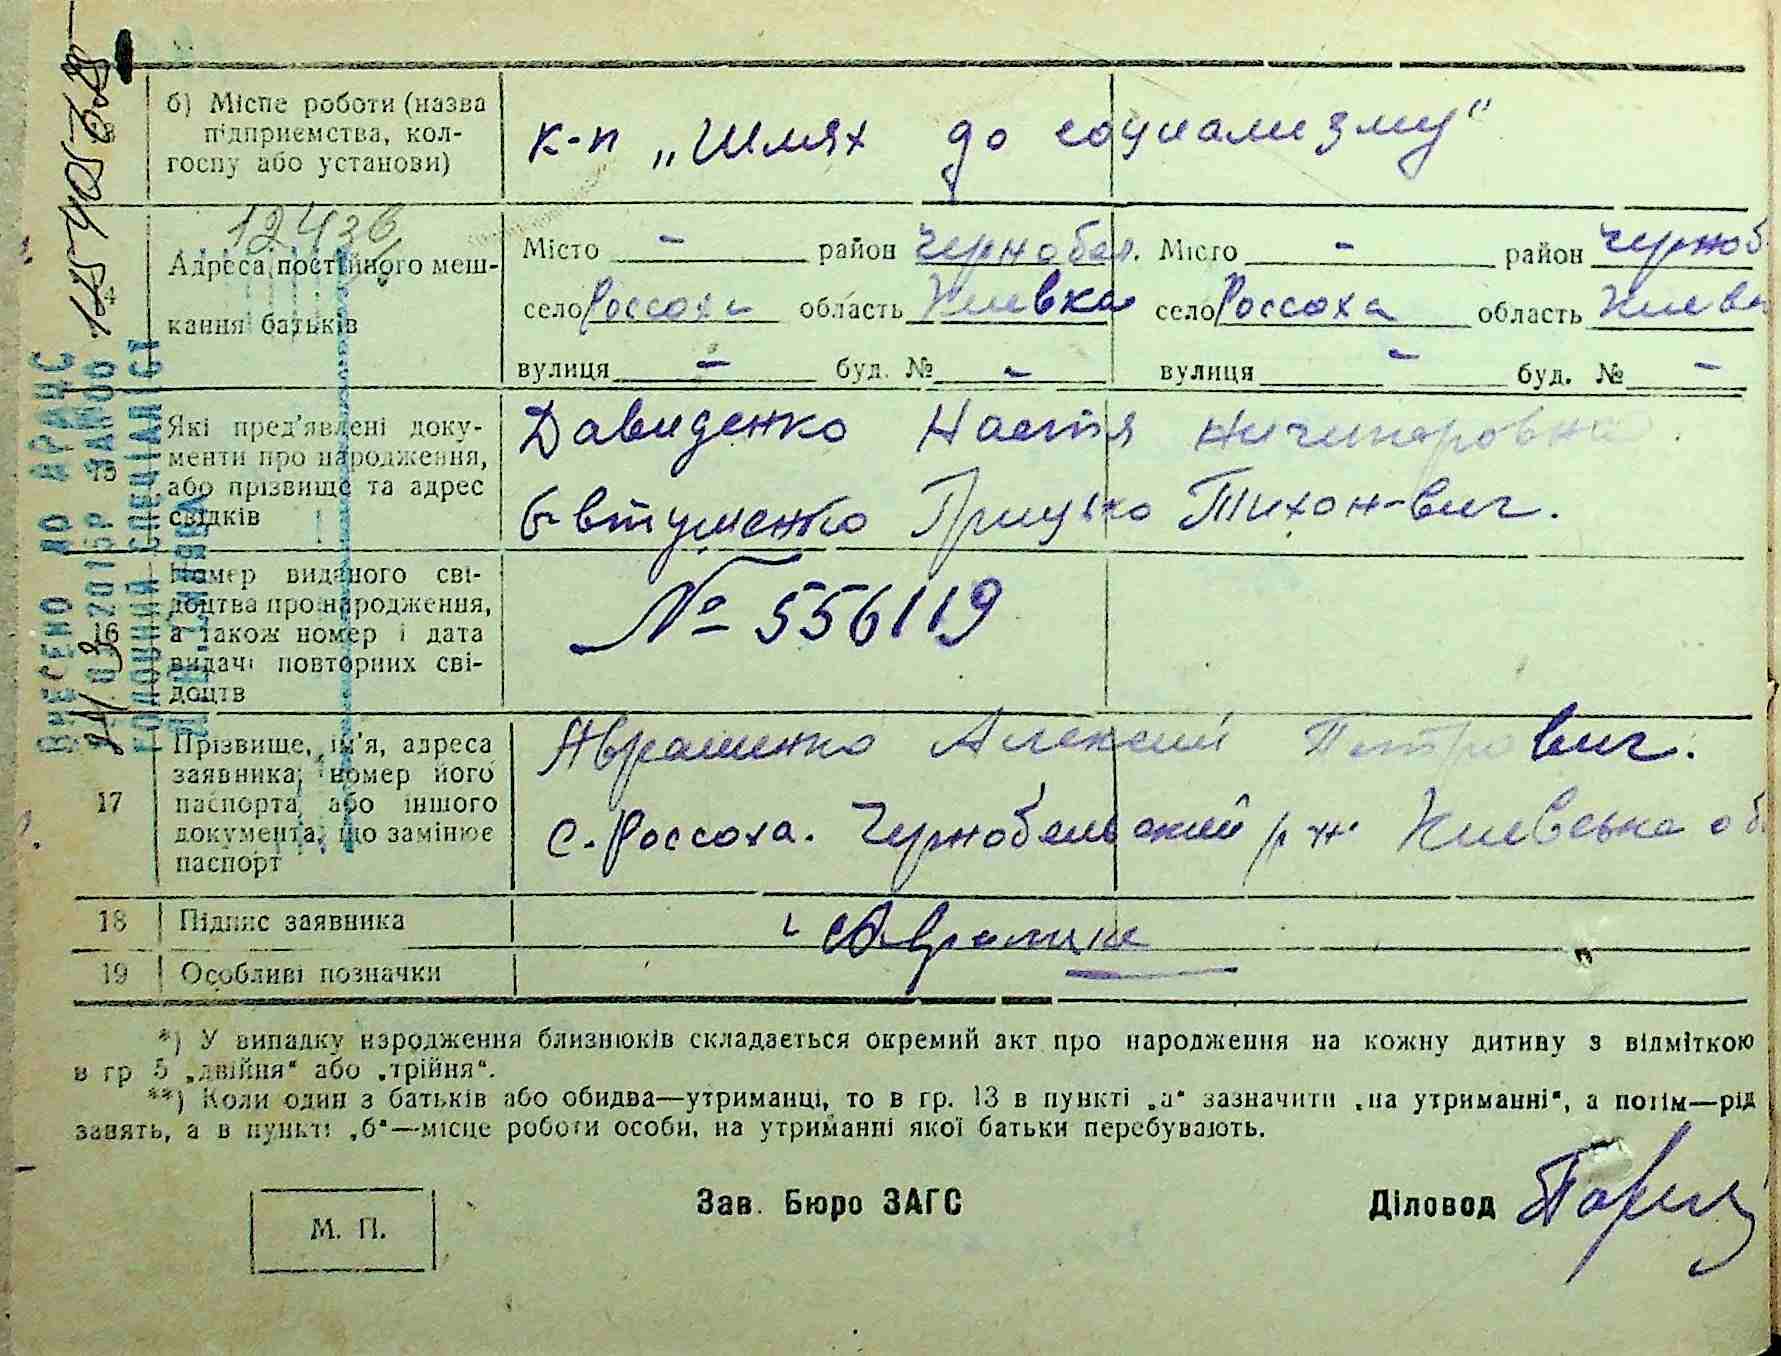 б) Місце роботи (назва
підприємства, кол-
госпу або установи)
к-п „Шлях до социализму"
12436
Адреса постійного меш-
кання батьків
Місто - район Чернобел. Місто - район Чорноб
село Россоха область Киевска село Россоха область Киевс
вулиця - буд. № - вулиця - буд. № -
Які пред'явлені доку-
менти про народження,
або прізвище та адрес
свідків
15
Давиденко Настя Ничипоровна.
Евтушенко Грицько Тихон-вич.
Номер виданого сві-
доцтва про народження,
а також номер і дата
видачі повторних сві-
доцтв
16
№ 556119
17
Прізвище, ім'я, адреса
заявника, номер його
паспорта або іншого
документа, що замінює
паспорт
Аврашенко Алексий Петрович.
с. Россоха. Чернобельский р-н Киевська об
18 Підпис заявника
19 Особливі позначки
*) У випадку народження близнюків складається окремий акт про народження на кожну дитину з відміткою
в гр 5 „двійня" або „трійня".
**) Коли один з батьків або обидва—утриманці, то в гр. 13 в пункті „а" зазначити „на утриманні", а потім—рід
занять, а в пункті „б"—місце роботи особи, на утриманні якої батьки перебувають.
М. П.
Зав. Бюро ЗАГС
Діловод
ВНЕСЕНО ДО ДРАЦС
ГОЛОВНИЙ СПЕЦІАЛІСТ